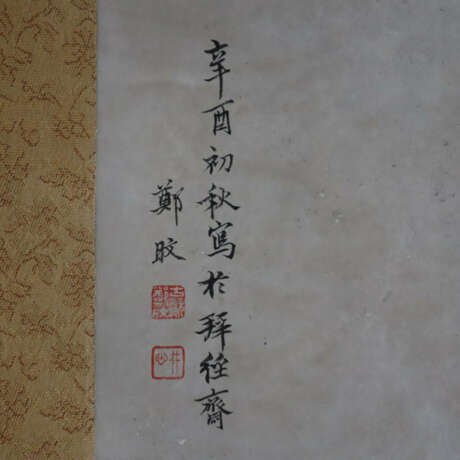 辛酉初秋寫於拜經齋
鄭旼